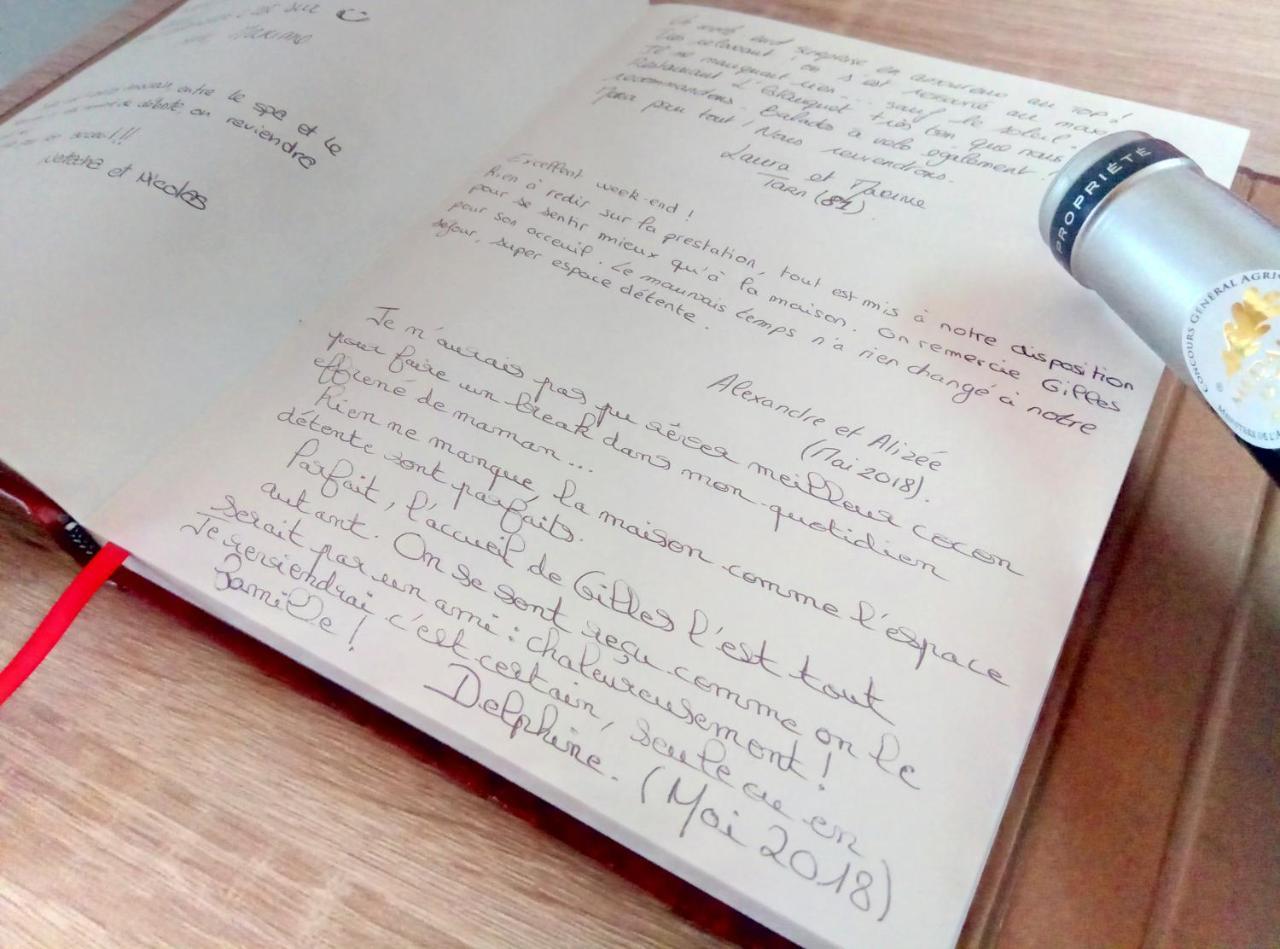 est sur
Maxime
entre le spa et le
détente, on reviendra
!!!
Natacha et Nicolas
Ce week end surprise en amoureux au TOP!
Très relaxant, on s'est retrouvé au max
Il ne manquait rien... sauf le soleil.
Restaurant très bon que nous
recommandons. Balades à vélo également!
pour tout! Nous reviendrons.
Laura et Maxime
Tarn (81).
Excellent week-end!
Rien à redire sur la prestation, tout est mis à notre disposition
pour se sentir mieux qu'à la maison. On remercie Gilles
pour son acceuil. Le mauvais temps n'a rien changé à notre
séjour, super espace détente.
Alexandre et Alizée
(Mai 2018).
Je n'aurais pas pu rêver meilleur cocon
pour faire un break dans mon quotidien
effréné de maman...
Rien ne manque, la maison comme l'espace
détente sont parfaits.
Parfait, l'accueil de Gilles l'est tout
autant. On se sent reçu comme on le
serait par un ami: chaleureusement!
Je reviendrai c'est certain, seule ou en
famille!
Delphine. (Mai 2018)
PROPRIÉTÉ
CONCOURS GÉNÉRAL